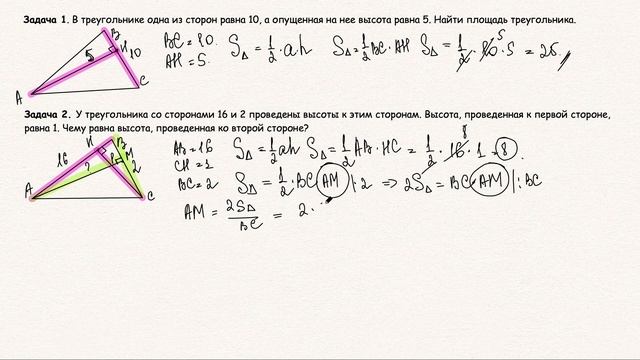 Задача 1. В треугольнике одна из сторон равна 10, а опущенная на нее высота равна 5. Найти площадь треугольника.
B H 10 5 A C
BC = 10.
AH = 5.
S△ = 1/2 · ah S△ = 1/2 BC · AH S△ = 1/2 · 10 · 5 = 25.
5
Задача 2. У треугольника со сторонами 16 и 2 проведены высоты к этим сторонам. Высота, проведенная к первой стороне,
равна 1. Чему равна высота, проведенная ко второй стороне?
H B M 16 ? 1 2 A C
AB = 16
CH = 1
BC = 2
S△ = 1/2 ah S△ = 1/2 AB · HC = 1/2 · 16 · 1 = 8.
8
S△ = 1/2 · BC · AM |· 2 ⇒ 2S△ = BC · AM |: BC
AM = 2S△/BC = 2 ·